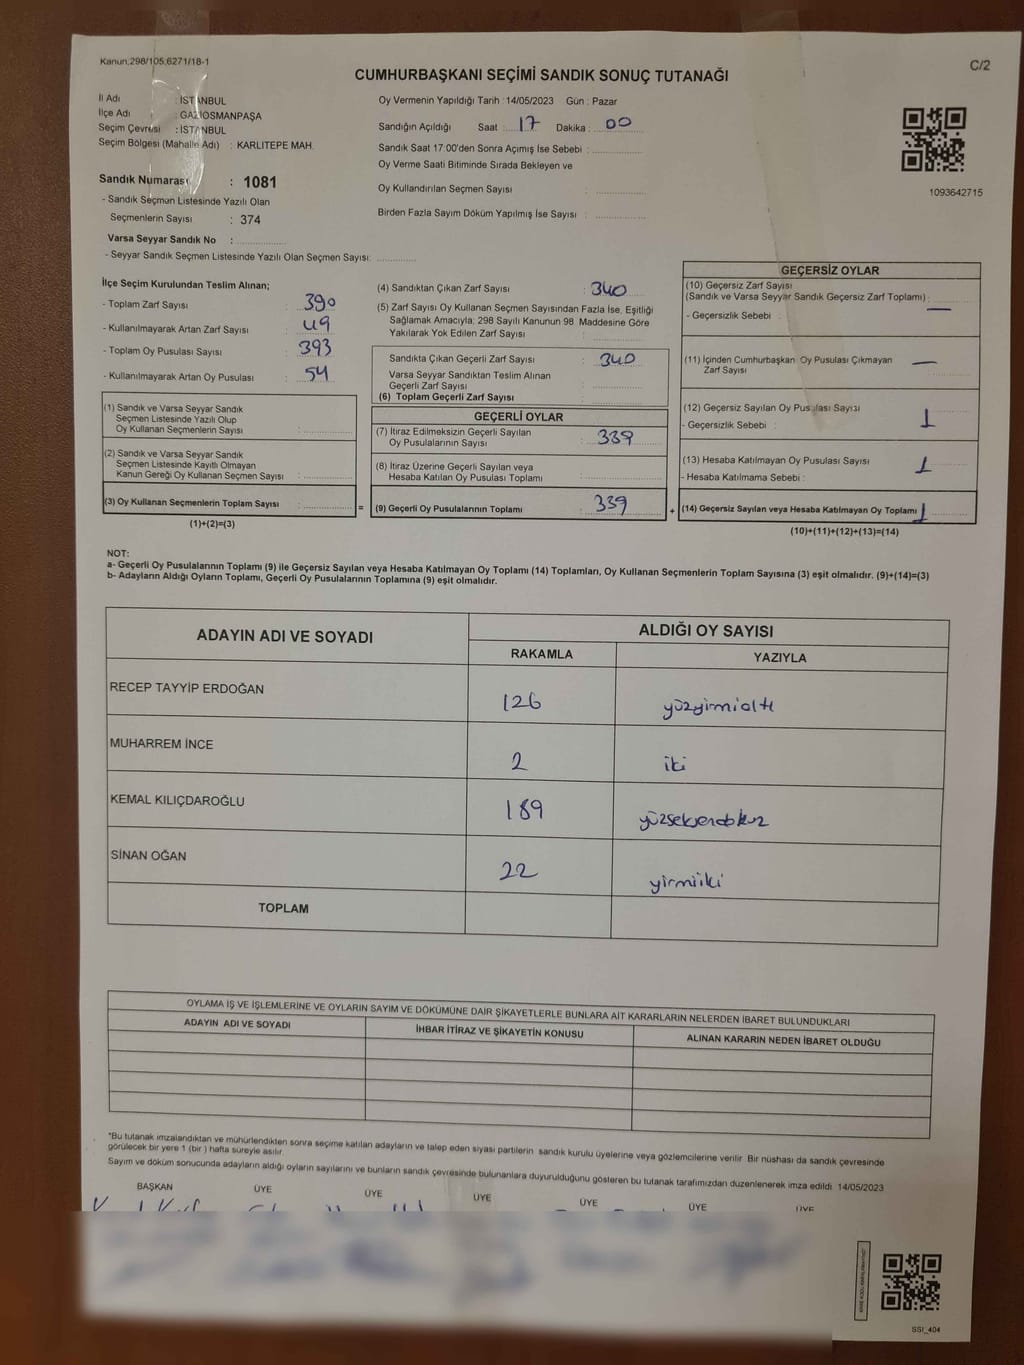 Kanun,298/105,6271/18-1
C/2
CUMHURBAŞKANI SEÇİMİ SANDIK SONUÇ TUTANAĞI
İl Adı : İSTANBUL
İlçe Adı : GAZİOSMANPAŞA
Seçim Çevresi : İSTANBUL
Seçim Bölgesi (Mahalle Adı) : KARLITEPE MAH.
Sandık Numarası : 1081
- Sandık Seçmen Listesinde Yazılı Olan
Seçmenlerin Sayısı : 374
Varsa Seyyar Sandık No :
- Seyyar Sandık Seçmen Listesinde Yazılı Olan Seçmen Sayısı:
Oy Vermenin Yapıldığı Tarih : 14/05/2023 Gün : Pazar
Sandığın Açıldığı Saat : 17 Dakika : 00
Sandık Saat 17:00'den Sonra Açımış İse Sebebi :
Oy Verme Saati Bitiminde Sırada Bekleyen ve
Oy Kullandırılan Seçmen Sayısı :
Birden Fazla Sayım Döküm Yapılmış İse Sayısı :
1093642715
İlçe Seçim Kurulundan Teslim Alınan;
- Toplam Zarf Sayısı : 390
- Kullanılmayarak Artan Zarf Sayısı : 49
- Toplam Oy Pusulası Sayısı : 393
- Kullanılmayarak Artan Oy Pusulası : 54
(1) Sandık ve Varsa Seyyar Sandık
Seçmen Listesinde Yazılı Olup
Oy Kullanan Seçmenlerin Sayısı :
(2) Sandık ve Varsa Seyyar Sandık
Seçmen Listesinde Kayıtlı Olmayan
Kanun Gereği Oy Kullanan Seçmen Sayısı :
(3) Oy Kullanan Seçmenlerin Toplam Sayısı :
(1)+(2)=(3)
=
(4) Sandıktan Çıkan Zarf Sayısı : 340
(5) Zarf Sayısı Oy Kullanan Seçmen Sayısından Fazla İse, Eşitliği
Sağlamak Amacıyla; 298 Sayılı Kanunun 98 Maddesine Göre
Yakılarak Yok Edilen Zarf Sayısı :
Sandıkta Çıkan Geçerli Zarf Sayısı : 340
Varsa Seyyar Sandıktan Teslim Alınan
Geçerli Zarf Sayısı :
(6) Toplam Geçerli Zarf Sayısı :
GEÇERLİ OYLAR
(7) İtiraz Edilmeksizin Geçerli Sayılan
Oy Pusulalarının Sayısı : 339
(8) İtiraz Üzerine Geçerli Sayılan veya
Hesaba Katılan Oy Pusulası Toplamı :
(9) Geçerli Oy Pusulalarının Toplamı : 339
+
GEÇERSİZ OYLAR
(10) Geçersiz Zarf Sayısı
(Sandık ve Varsa Seyyar Sandık Geçersiz Zarf Toplamı) : —
- Geçersizlik Sebebi :
(11) İçinden Cumhurbaşkanı Oy Pusulası Çıkmayan
Zarf Sayısı : —
(12) Geçersiz Sayılan Oy Pusulası Sayısı : 1
- Geçersizlik Sebebi :
(13) Hesaba Katılmayan Oy Pusulası Sayısı : 1
- Hesaba Katılmama Sebebi :
(14) Geçersiz Sayılan veya Hesaba Katılmayan Oy Toplamı : 1
(10)+(11)+(12)+(13)=(14)
NOT:
a- Geçerli Oy Pusulalarının Toplamı (9) ile Geçersiz Sayılan veya Hesaba Katılmayan Oy Toplamı (14) Toplamları, Oy Kullanan Seçmenlerin Toplam Sayısına (3) eşit olmalıdır. (9)+(14)=(3)
b- Adayların Aldığı Oyların Toplamı, Geçerli Oy Pusulalarının Toplamına (9) eşit olmalıdır.
ADAYIN ADI VE SOYADI
ALDIĞI OY SAYISI
RAKAMLA
YAZIYLA
RECEP TAYYİP ERDOĞAN 126 yüzyirmialtı
MUHARREM İNCE 2 iki
KEMAL KILIÇDAROĞLU 189 yüzseksendokuz
SİNAN OĞAN 22 yirmiiki
TOPLAM
OYLAMA İŞ VE İŞLEMLERİNE VE OYLARIN SAYIM VE DÖKÜMÜNE DAİR ŞİKAYETLERLE BUNLARA AİT KARARLARIN NELERDEN İBARET BULUNDUKLARI
ADAYIN ADI VE SOYADI
İHBAR İTİRAZ VE ŞİKAYETİN KONUSU
ALINAN KARARIN NEDEN İBARET OLDUĞU
*Bu tutanak imzalandıktan ve mühürlendikten sonra seçime katılan adayların ve talep eden siyasi partilerin sandık kurulu üyelerine veya gözlemcilerine verilir. Bir nüshası da sandık çevresinde
görülecek bir yere 1 (bir) hafta süreyle asılır.
Sayım ve döküm sonucunda adayların aldığı oyların sayılarını ve bunların sandık çevresinde bulunanlara duyurulduğunu gösteren bu tutanak tarafımızdan düzenlenerek imza edildi. 14/05/2023
BAŞKAN ÜYE ÜYE ÜYE ÜYE ÜYE ÜYE
SSI_404